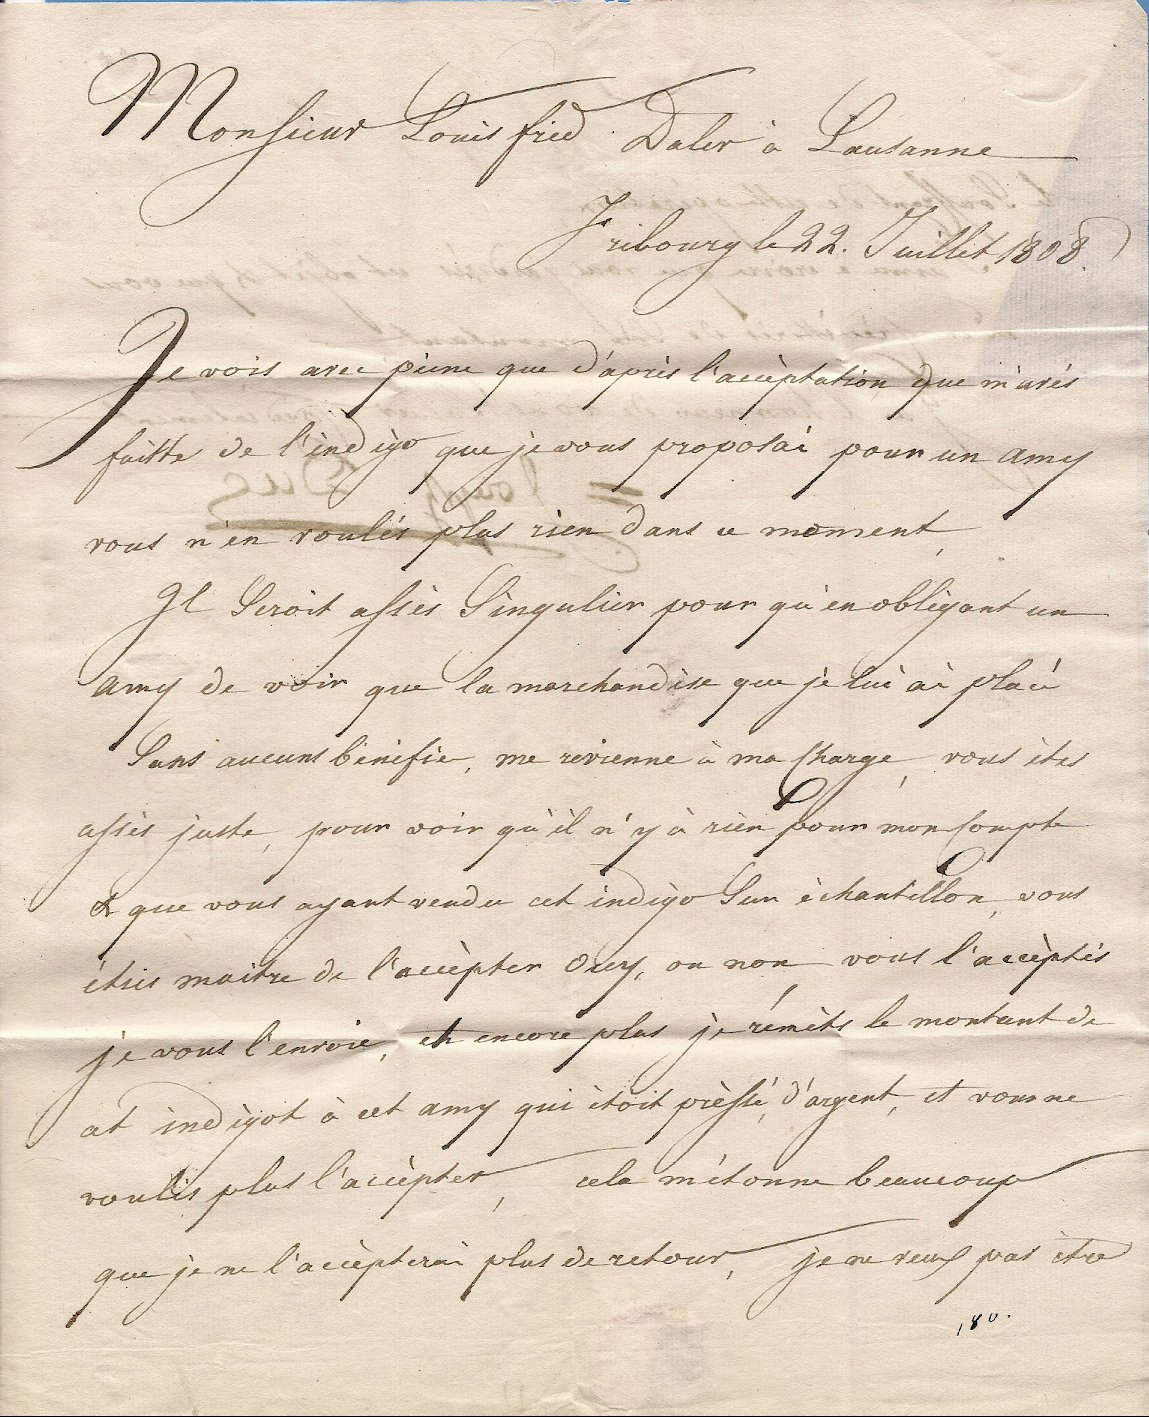 Monsieur Louis fred Daler à Lausanne
Fribourg le 22. Juillet 1808.
Je vois avec peine que d'après l'accèptation que m'avés
faitte de l'indigo que je vous proposai pour un amy
vous n'en voulés plus rien dans ce moment,
Il Seroit assès Singulier pour qu'en obligeant un
amy de voir que la marchandise que je lui ai placé
Sans aucuns bénéfice, me revienne à ma Charge, vous êtes
assès juste, pour voir qu'il n'y à rien pour mon Compte
& que vous ayant vendu cet indigo Sur èchantillon, vous
étiés maitre de l'accèpter Ouy, ou non, vous l'accèptés
je vous l'envoie, et encore plus je rémèts le montant de
cet indigot à cet amy qui ètoit prèssé, d'argent, et vous ne
voulés plus l'accèpter, cela m'étonne beaucoup
que je ne l'accèpterai plus de retour, je ne veux pas être
180.